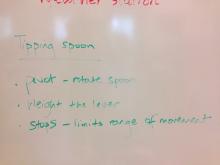 Weather Station
Tipping spoon
• pivot - rotate spoon
• Weight the lever
• Stops - limits range of movement